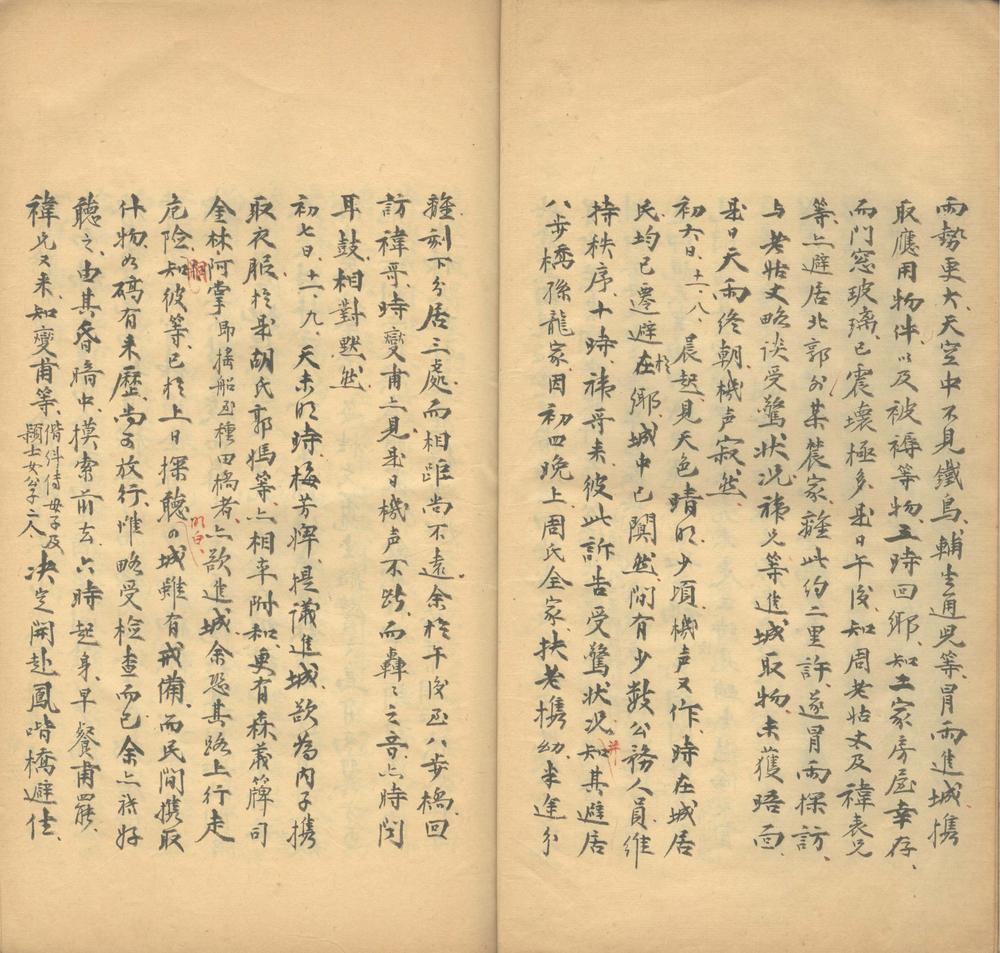 雨勢更大、天空中不見鐵鳥、輔生通兒等、冒雨進城攜
取應用物件以及被褥等物、五時回鄉、知工家房屋幸存、
而門窓玻璃、已震壞極多、是日午後、知周老姑丈及禕表兄
等、亠避居北郭外某農家、離此約二里許、遂冒雨探訪、
与老姑丈略谈受驚狀况、祎兄等進城取物、未獲晤面、
是日天雨終朝、機声寂然、
初六日、十一、八、晨起見天色晴明、少頃機声又作、時在城居
民、均已遷避在於鄉、城中已闃然、间有少数公務人員維
持秩序、十時、祎哥来彼此訴告受驚狀况、并知其避居
八步橋孫龍家、因初四晚上周氏全家、扶老攜幼、来逢分
離、刻下分居三處、而相距尚不遠、余於午後至八步橋回
訪禕哥、時變甫亠見、是日機声不断、而轟〻之音、亠時闻
耳鼓、相對黙然、
初七日、十一、九、天未明時、梅芳寤、提議進城、欲為内子攜
取衣服、於是胡氏郭媽等、亠相率附和、更有森義牌司
金林、阿掌、即摇船至種田橋者、亠欲進城、余恐其路上行走
危险、嗣知彼等、已於上日探聴明白、城雖有戒備、而民间攜取
什物、如碻有来歷、尚可放行、惟略受检查而已、余亠祗好
聴之、由其昏暗中、摸索前去、六時起身、早餐甫罷、
禕兄又来、知變甫等、偕伴侍母子及
顯士女公子二人、决定開赴鳳喈橋避住、